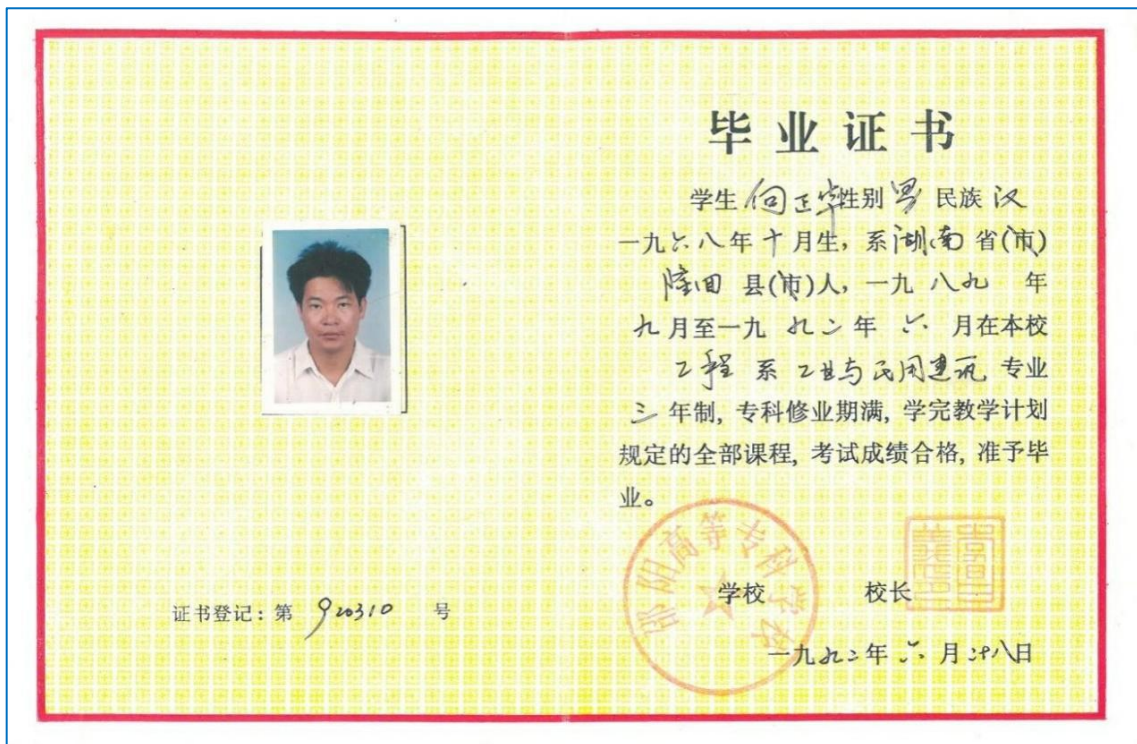 毕业证书
学生 正华性别 男 民族 汉
一九六八年十月生, 系湖南省(市)
隆回 县(市)人, 一九八九 年
九月至一九九二年 六 月在本校
工程 系 工业与民用建筑 专业
三 年制, 专科修业期满, 学完教学计划
规定的全部课程, 考试成绩合格, 准予毕
业。
邵阳高等专科学校
学校 校长
一九九二年 六 月二十八日
证书登记: 第 920310 号